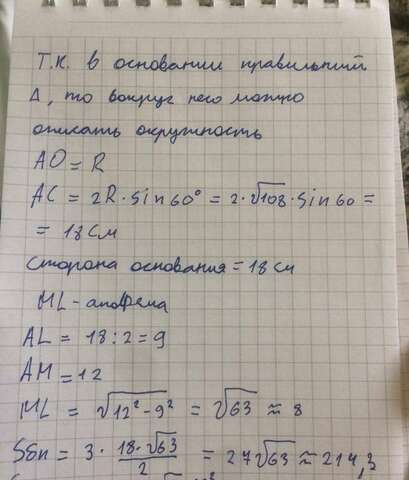 Т.к. в основании правильный
Δ, то вокруг него можно
описать окружность
AO = R
AC = 2R · sin 60° = 2 · √108 · sin 60 =
= 18 см
Сторона основания = 18 см
ML - апофема
AL = 18 : 2 = 9
AM = 12
ML = √12² - 9² = √63 ≈ 8
Sбп = 3 · 18 · √63 / 2 = 27√63 ≈ 214,3